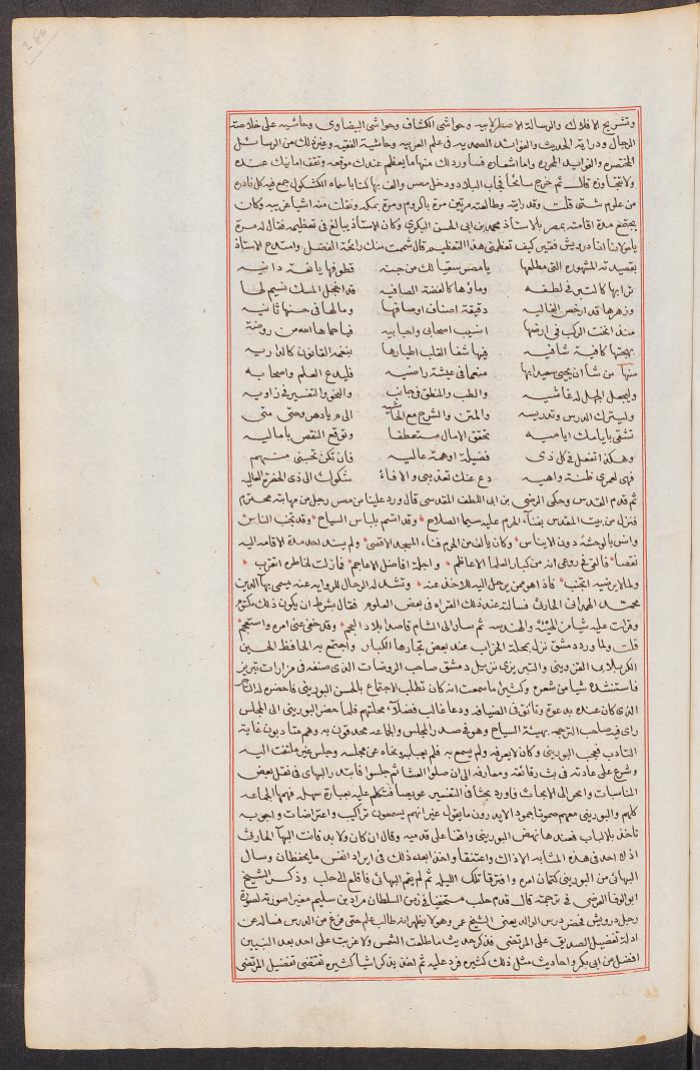 284
وتشريح الافلاك والرسالة الاصطرلابيه وحواشى الكشاف وحواشى البيضاوى وحاشيه على خلاصة
الرجال ودراية الحديث والفوائد الصمديه فى علم العربيه وحاشية الفقيه وغير ذلك من الرسائل
المختصره والفوائد المحرره واما اشعاره فساورد لك منها ما يعظم عندك موقعه وتقف امانيك عنده
ولا تتجاوزه قال ثم خرج سائحا يجاب البلاد ودخل مصر والف بها كتابا سماه الكشكول جمع فيه كل نادره
من علوم شتى قلت وقد رايته وطالعته مرتين مرة بالروم ومرة بمكه ونقلت منه اشيا غريبه وكان
يجتمع مدة اقامته بمصر بالاستاذ محمد بن ابى الحسن البكرى وكان الاستاذ يبالغ فى تعظيمه فقال له مرة
يا مولانا انا درويش فقير كيف تعظمنى هذا التعظيم قال شممت منك رائحة الفضل وامتدح الاستاذ
بقصيدته المشهوره التى مطلعها يا مصر سقيا لك من جنه قطوفها يانعة دانيه
ترابها كالتبر فى لطفه وماؤها كالفضة الصافيه قد اخجل المسك نسيم لها
وزهرها قد ارخص الغاليه دقيقة اصناف اوصافها وما لها فى حسنها ثانيه
منذ انخت الركب فى ارضها انسيت اصحابى واحبابيه فيا حماها الله من روضة
بهجتها كافية شافيه فيها شفا القلب اطيارها بنغمة القانون كالداريه
منها من شا ان يحيى سعيدا بها منعما فى عيشة راضيه فليدع العلم واصحابه
وليجعل الجهل له غاشيه والطب والمنطق فى جانب والنحو والتفسير فى زاويه
وليترك الدرس وتدريسه والمتن والشرح مع الحاشيه الى م يا دهر وحتى متى
تشقى بايامك اياميه تحقق الامال مستعطفا وتوقع النقص باماليه
وهكذا تفعل فى كل ذى فضيلة او همة عاليه فان تكن تحسبنى منهم
فهى لعمرى ظنة واهيه دع عنك تعذيبى والا فا شكوك الى ذى الحضرة العاليه
ثم قدم القدس وحكى الرضى بن ابى اللطف المقدسى قال ورد علينا من مصر رجل من مهابته محترم
فنزل من بيت المقدس بفناء الحرم عليه سيما الصلاح وقد اتسم بلباس السياح وقد تجنب الناس
وانس بالوحشة دون الايناس وكان يالف من الحرم فناء المسجد الاقصى ولم يسند احد مدة الاقامه اليه
نقصا فالقى فى روعى انه من كبار العلما الاعاظم واجلة افاضل الاعاجم فما زلت لخاطره اتقرب
ولما لا يرضيه اتجنب فاذا هو ممن يرحل اليه للاخذ عنه وتشد له الرحال للروايه عنه يسمى بها الدين
محمد الهمدانى الحارثى فسالته عند ذلك القراه فى بعض العلوم فقال بشرط ان يكون ذلك مكتوم
وقرات عليه شيا من الهيئة والهندسه ثم سار الى الشام قاصدا بلاد العجم وقد خفى عنى امره واستعجم
قلت ولما ورد دمشق نزل بمحلة الخراب عند بعض تجارها الكبار واجتمع به الحافظ الحسين
الكربلاى القزوينى والتبريزى نزيل دمشق صاحب الروضات الذى صنفه فى مزارات تبريز
فاستنشده شيا من شعره وكثيرا ما سمعت انه كان تطلب الاجتماع بالحسن البورينى فاحضره له التاجر
الذى كان عنده بدعوة وتانق فى الضيافه ودعا غالب فضلاء محلتهم فلما حضر البورينى الى المجلس
راى فيه صاحب الترجمه بهيئة السياح وهو فى صدر المجلس والجماعه محدقون به وهم متادبون غاية
التادب فعجب البورينى وكان لا يعرفه ولم يسمع به فلم يعبا به ونحاه عن مجلسه وجلس غير ملتفت اليه
وشرع على عادته فى بث رقائقه ومعارفه الى ان صلوا العشا ثم جلسوا فابتدر البهاى فى نقل بعض
المناسبات وانجر الى الابحاث فاورد بحثا فى التفسير عويصا فتكلم عليه بعبارة سهله فهمها الجماعه
كلهم والبورينى معهم صموتا جمودا لا يدرون ما يقول غير انهم يسمعون تراكيب واعتراضات واجوبه
تاخذ بالالباب فعندها نهض البورينى واقفا على قدميه وقال ان كان ولا بد فانت البهآ الحارثى
اذ لا احد فى هذه المثابه الا ذاك واعتنقا واخذ ابعد ذلك فى ايراد انفس ما يحفظان وسال
البهائى من البورينى كتمان امره وافترقا تلك الليله ثم لم يقم البهائى فاقلع الى حلب وذكر الشيخ
ابو الوفا العرضى فى ترجمته قال قدم حلب مستخفيا فى زمن السلطان مراد بن سليم مغيرا صورته لصورة
رجل درويش فحضر درس الوالد يعنى الشيخ عمر وهو لا يظهر انه طالب علم حتى فرغ من الدرس فساله عن
ادلة تفضيل الصديق على المرتضى فذكر حديث ما طلعت الشمس ولا غربت على احد بعد النبيين
افضل من ابى بكر واحاديث مثل ذلك كثيره فرد عليه ثم اخذ يذكر اشيا كثيره تقتضى تفضيل المرتضى